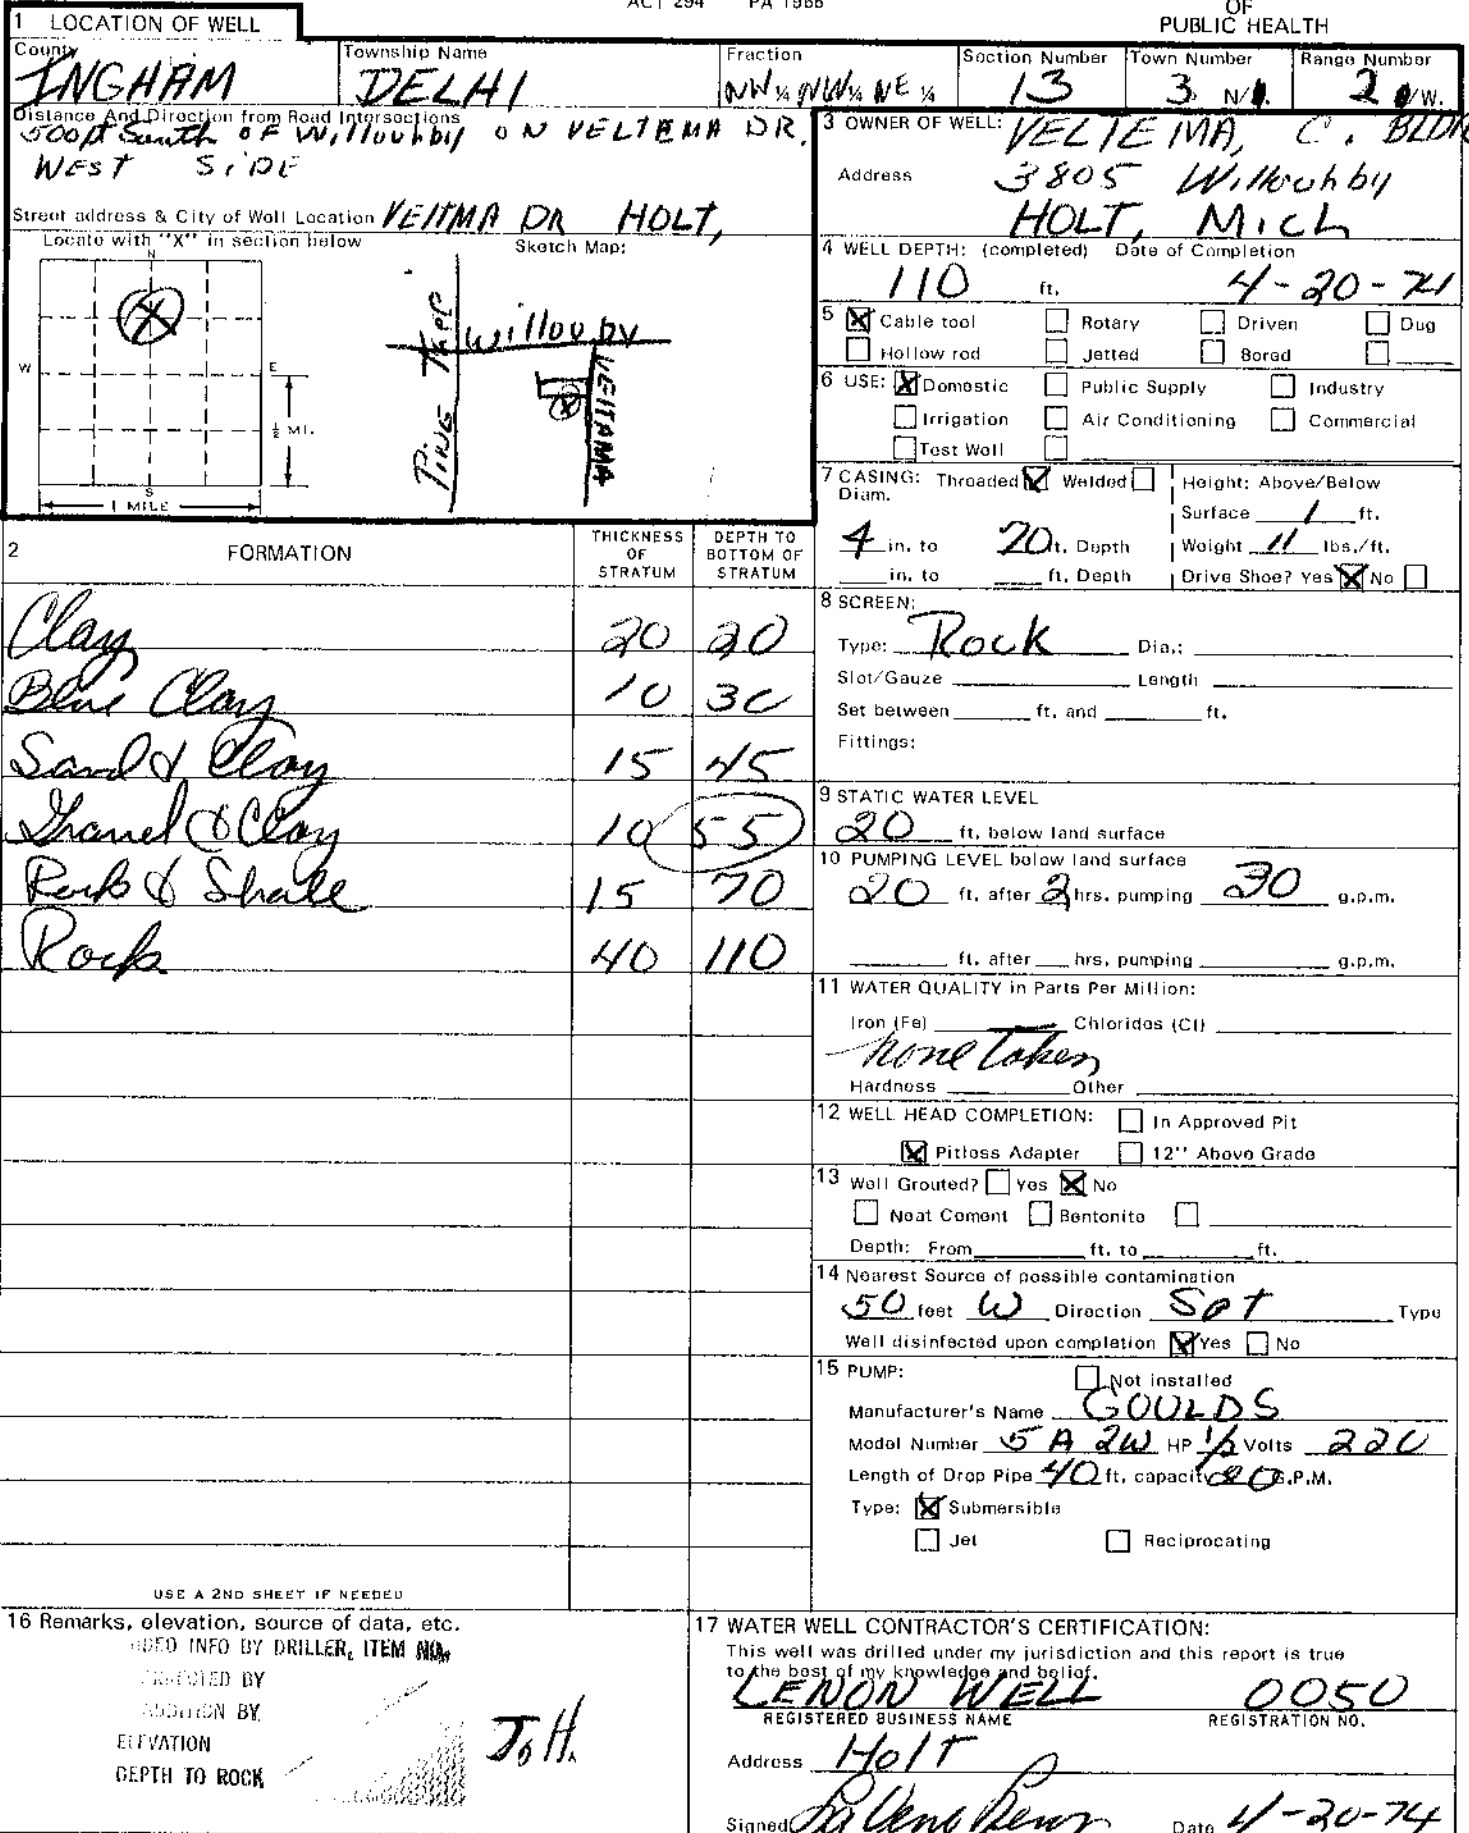 ACT 294 PA 1965
OF
PUBLIC HEALTH
1 LOCATION OF WELL
County
INGHAM
Township Name
DELHI
Fraction
NW ¼ NW ¼ NE ¼
Section Number
13
Town Number
3 N/
Range Number
2 /W.
Distance And Direction from Road Intersections
500ft South OF Willouhby ON VELTEMA DR.
WEST SIDE
Street address & City of Well Location VEITMA DR HOLT,
Locate with "X" in section below
Sketch Map:
N
W
E
S
½ MI.
1 MILE
X
Willouby
PINE
VEITAMA
X
3 OWNER OF WELL: VELTEMA, C. BLDR
Address 3805 Willouhby
HOLT, MicH
4 WELL DEPTH: (completed) Date of Completion
110 ft. 4-20-74
5 Cable tool Rotary Driven Dug
Hollow rod Jetted Bored
6 USE: Domestic Public Supply Industry
Irrigation Air Conditioning Commercial
Test Well
7 CASING: Threaded Welded Height: Above/Below
Diam.
Surface 1 ft.
4 in. to 70 ft. Depth Weight 11 lbs./ft.
in. to ft. Depth Drive Shoe? Yes No
2 FORMATION THICKNESS OF STRATUM DEPTH TO BOTTOM OF STRATUM
Clay 20 20
Blue Clay 10 30
Sand & Clay 15 45
Gravel & Clay 10 55
Rock & Shale 15 70
Rock 40 110
USE A 2ND SHEET IF NEEDED
8 SCREEN:
Type: Rock Dia.:
Slot/Gauze Length
Set between ft. and ft.
Fittings:
9 STATIC WATER LEVEL
20 ft. below land surface
10 PUMPING LEVEL below land surface
20 ft. after 2 hrs. pumping 30 g.p.m.
ft. after hrs. pumping g.p.m.
11 WATER QUALITY in Parts Per Million:
Iron (Fe) Chlorides (Cl)
none taken
Hardness Other
12 WELL HEAD COMPLETION: In Approved Pit
Pitless Adapter 12" Above Grade
13 Well Grouted? Yes No
Neat Cement Bentonite
Depth: From ft. to ft.
14 Nearest Source of possible contamination
50 feet W Direction Spt Type
Well disinfected upon completion Yes No
15 PUMP: Not installed
Manufacturer's Name GOULDS
Model Number 5 A 2W HP 1/2 Volts 220
Length of Drop Pipe 40 ft. capacity G.P.M.
Type: Submersible
Jet Reciprocating
16 Remarks, elevation, source of data, etc.
INFO BY DRILLER, ITEM NO.
BY
ADDITION BY
ELEVATION
DEPTH TO ROCK
J.H.
17 WATER WELL CONTRACTOR'S CERTIFICATION:
This well was drilled under my jurisdiction and this report is true
to the best of my knowledge and belief.
LENON WELL 0050
REGISTERED BUSINESS NAME REGISTRATION NO.
Address Holt
Signed Date 4-20-74